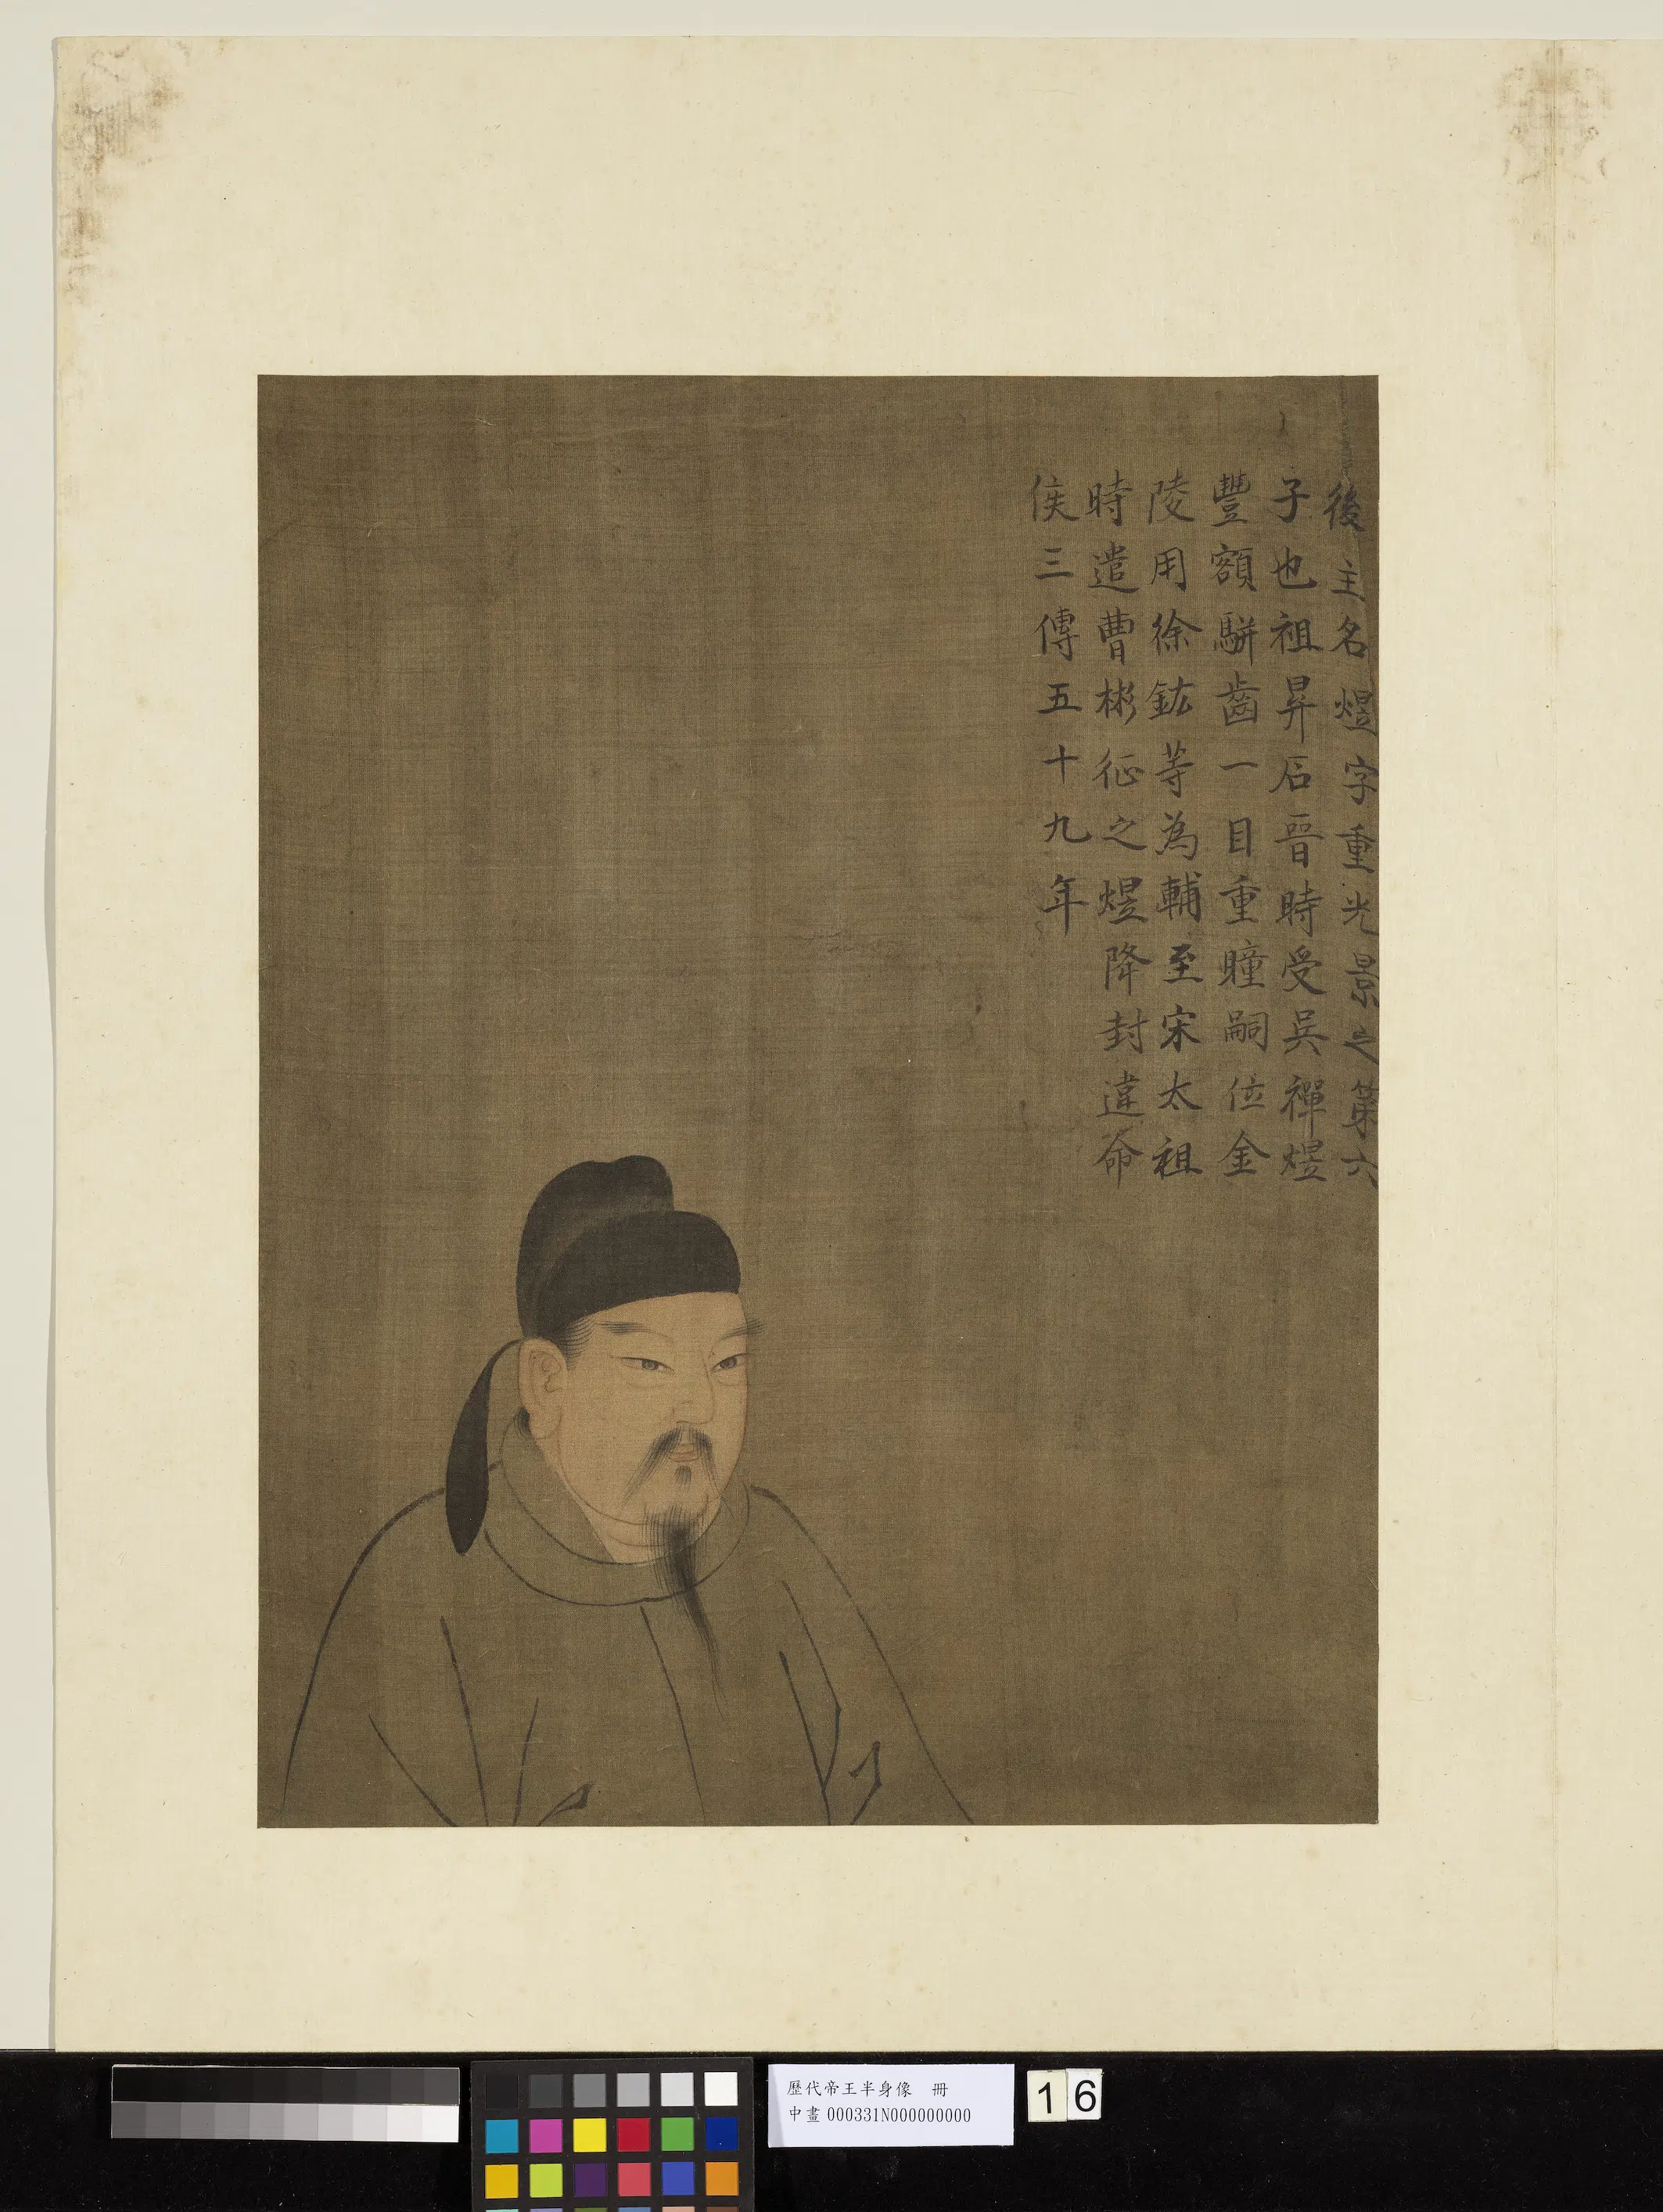 後主名煜字重光景之第六
子也祖昇石晉時受吳禪煜
豐額駢齒一目重瞳嗣位金
陵用徐鉉等為輔至宋太祖
時遣曹彬征之煜降封違命
侯三傳五十九年
歷代帝王半身像 冊
中畫 000331N000000000
16